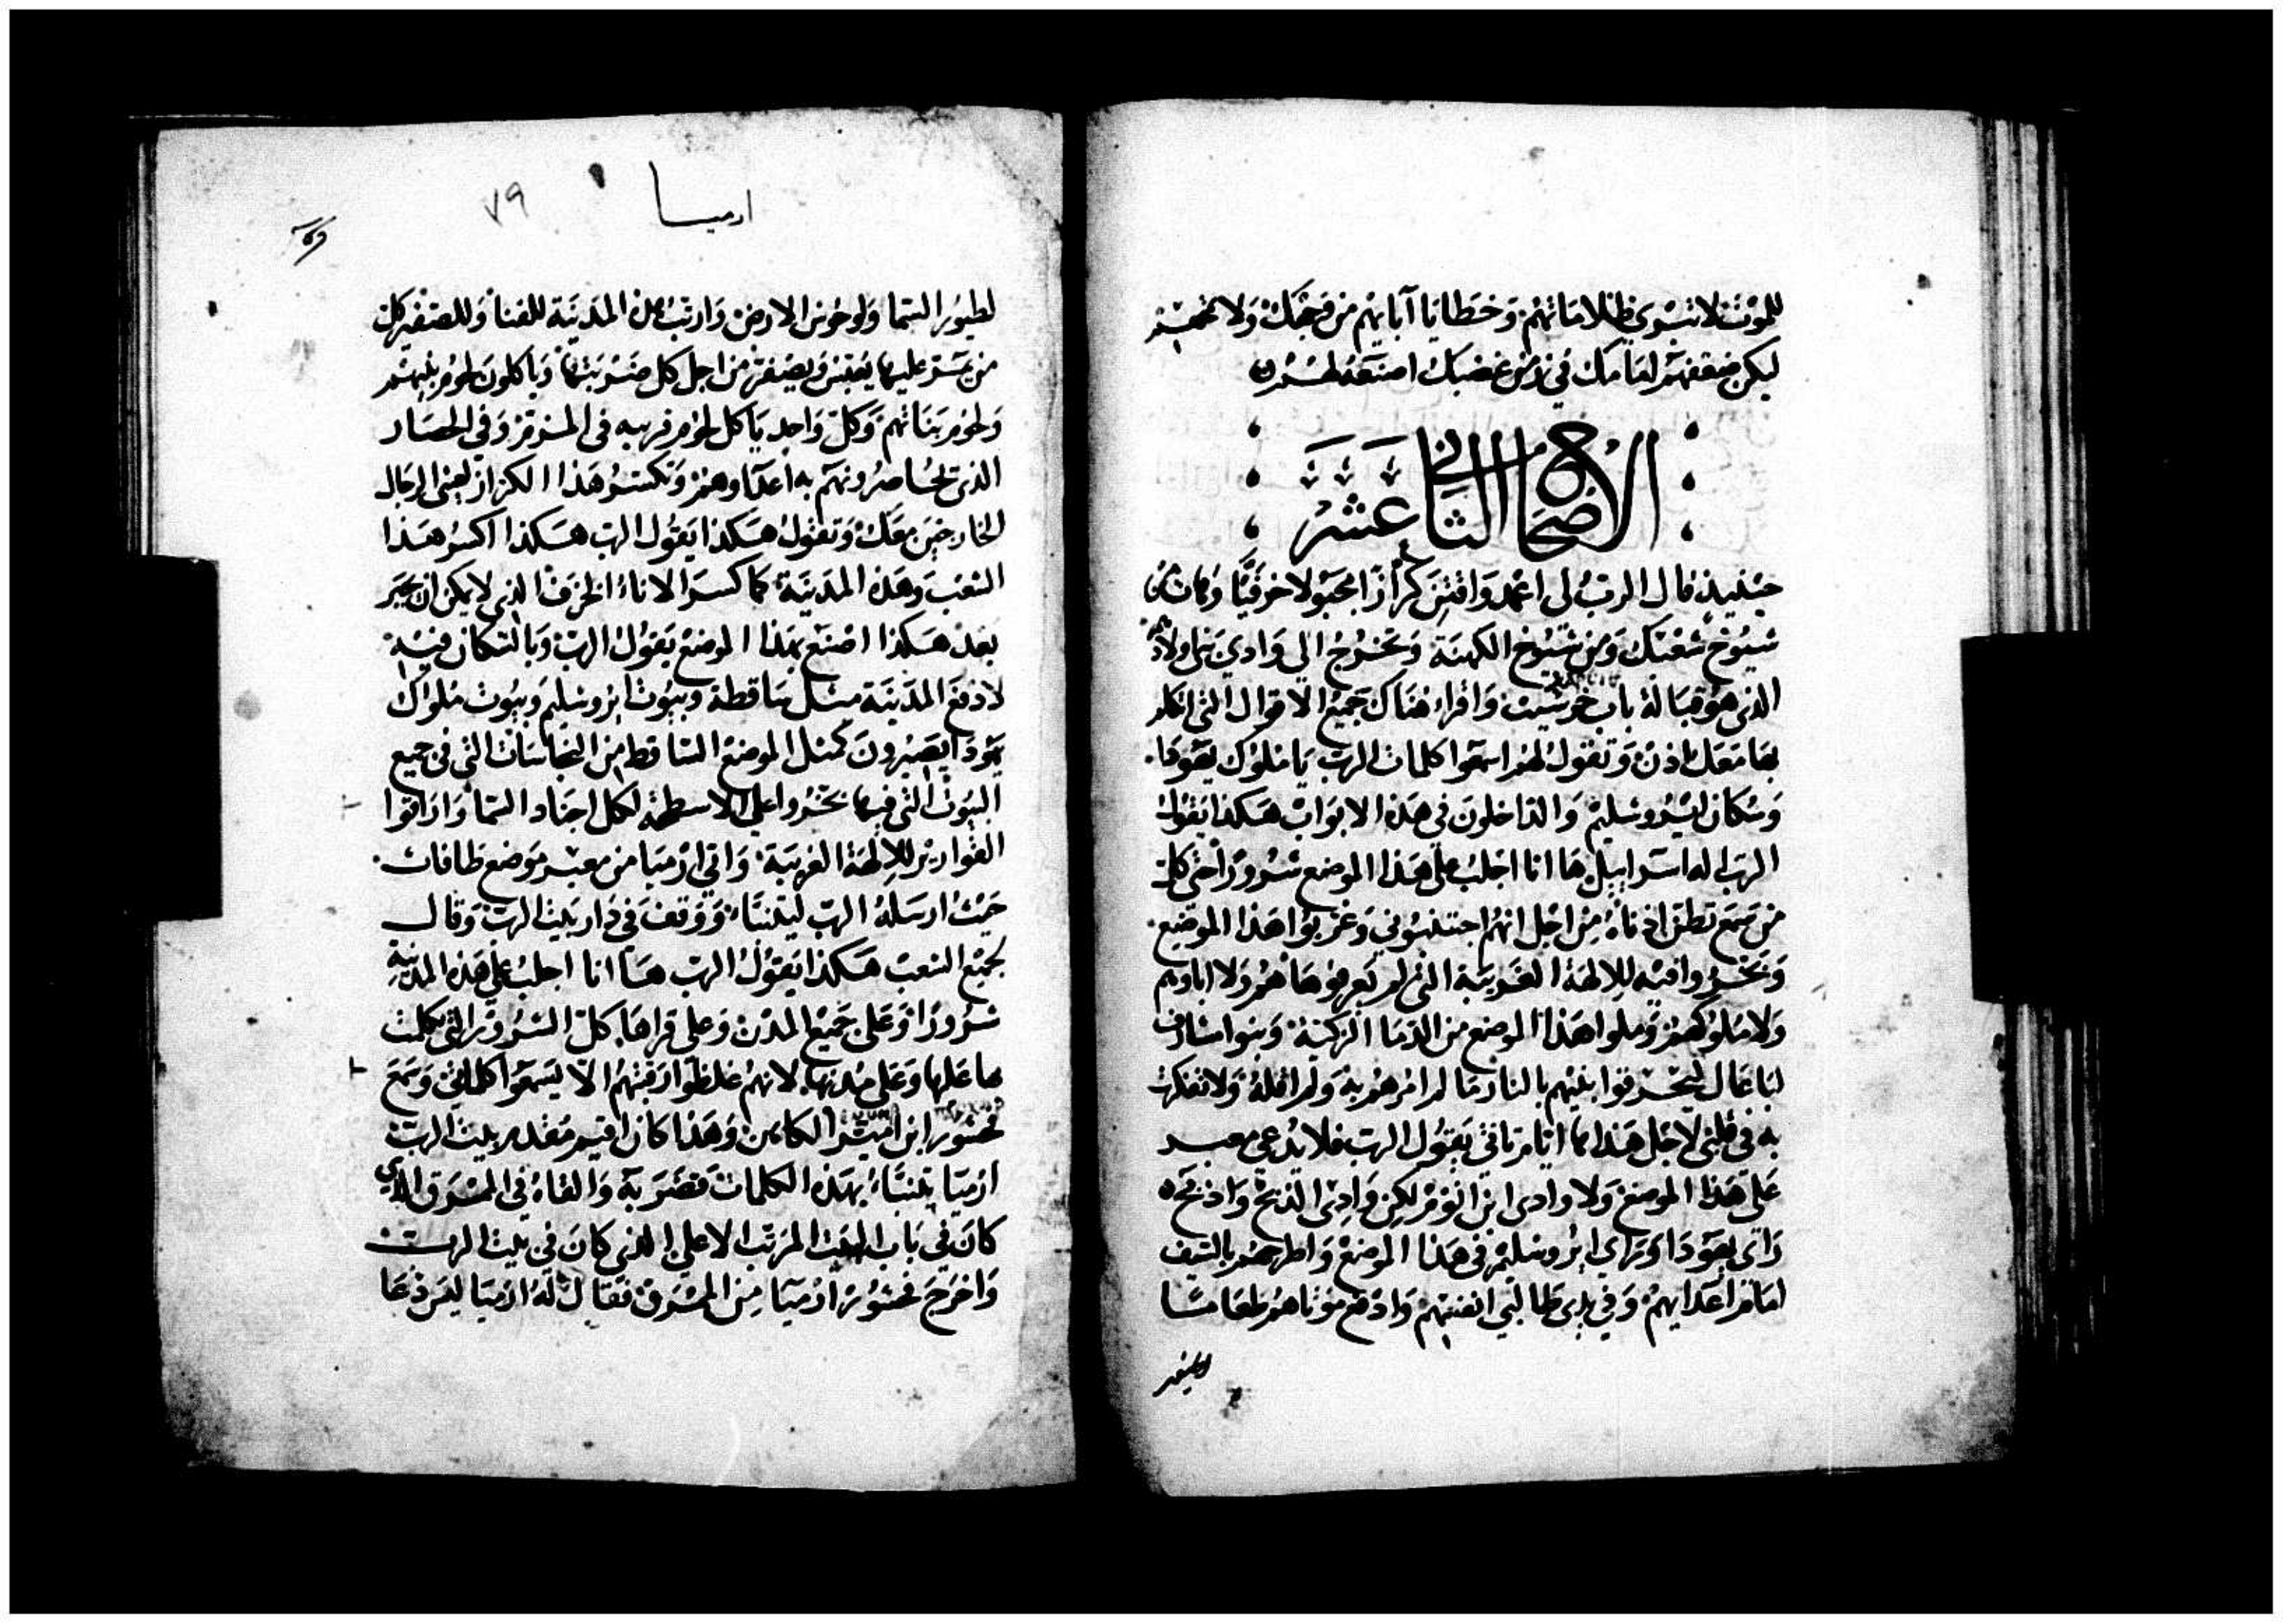 للموت لا تسوي ظلاماتهم وخطايا آبائهم من وجهك ولا تمحى
ليكن ضعفهم امامك في زمن غضبك اصنعه لهم
الاصحاح الثاني عشر
حينيذ قال الرب لى اعمد واقتن كرازا مجبولا خزفيا وهات من
شيوخ شعبك ومن شيوخ الكهنة وتخرج الى وادي بني اولاد
الذى هو قبالة باب خرسيت واقراء هناك جميع الاقوال التي اتكلم
بها معك اذن وتقول لهم اسمعوا كلمات الرب يا ملوك يهودا
وسكان ايروسليم والداخلون فى هذه الابواب هكذا يقول
الرب اله اسراييل ها انا اجلب على هذا الموضع شرورا حتى كل
من سمع تطن اذناه من اجل انهم اجتنبوني وغربوا هذا الموضع
وبخروا فيه للالهة الغريبة التي لم يعرفوها هم ولا اباوهم
ولا ملوكهم وملوا هذا الموضع من الدما الزكية وبنوا مشارف
لباعال ليحرقوا بنيهم بالنار ما لم امرهم به ولم اقله ولا تفكرت
به في قلبي لاجل هذا ها ايام تاتي يقول الرب فلا يدعى بعد
على هذا الموضع ولا وادى ابن انوم لكن وادى الذبح واذبح
راى يهودا وراي ايروسليم فى هذا الموضع واطرحهم بالسيف
امام أعدايهم وفي يدى طالبي انفسهم وادفع موتاهم طعاما
لطيور
ارميا
٧٩
لطيور السما ولوحوش الارض وارتب هذه المدينة للفنا وللصفير كل
من يمر عليها يعبس ويصفر من اجل كل ضربتها وياكلون لحوم بنيهم
ولحوم بناتهم وكل واحد ياكل لحوم قريبه فى المزقز وفي الحصار
الذى يحاصرونهم به اعداوهم وتكسر هذا الكراز لعينى الرجال
الخارجين معك وتقول هكذا يقول الرب هكذا اكسر هذا
الشعب وهذه المدينة كما كسر الاناء الخزف الذى لا يمكن ان يجبر
بعد هكذا اصنع بهذا الموضع يقول الرب وبالسكان فيه
لادفع المدينة مثل ساقطة وبيوت ايروسليم وبيوت ملوك
يهودا يصيرون كمثل الموضع الساقط من النجاسات التي فى جميع
البيوت التى فيها بخروا على الاسطحة لكل اجناد السما واراقوا
القوارير للالهة الغريبة واتى ارميا من معبر موضع طافات
حيث ارسله الرب ليتنبا ووقف في دار بيت الرب وقال
لجميع الشعب هكذا يقول الرب ها انا اجلب على هذه المدينة
شرورا وعلى جميع المدن وعلى قراها كل الشرور التى تكلمت
بها عليها وعلى مدنها لانهم غلظوا رقبتهم الا يسمعوا كلماتى وسمع
فحشور ابن امير الكاهن وهذا كان اقيم مقدم بيت الرب
ارميا يتنبا بهذه الكلمات فضربه والقاه فى المسرق الذي
كان في باب البيت المرتب الاعلى الذى كان فى بيت الرب
واخرج فحشور ارميا من المسرق فقال له ارميا ليس دعا